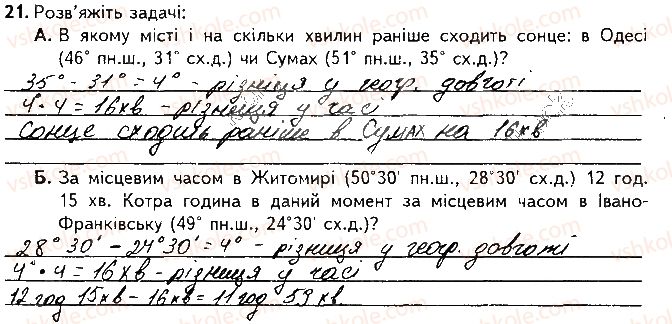 21. Розв'яжіть задачі:
А. В якому місті і на скільки хвилин раніше сходить сонце: в Одесі
(46° пн.ш., 31° сх.д.) чи Сумах (51° пн.ш., 35° сх.д.)?
35° - 31° = 4° - різниця у геогр. довготі
4°·4 = 16хв - різниця у часі
Сонце сходить раніше в Сумах на 16хв
Б. За місцевим часом в Житомирі (50°30' пн.ш., 28°30' сх.д.) 12 год.
15 хв. Котра година в даний момент за місцевим часом в Івано-
Франківську (49° пн.ш., 24°30' сх.д.)?
28°30' - 24°30' = 4° - різниця у геогр. довготі
4°·4 = 16хв - різниця у часі
12год 15хв - 16хв = 11год 59хв.